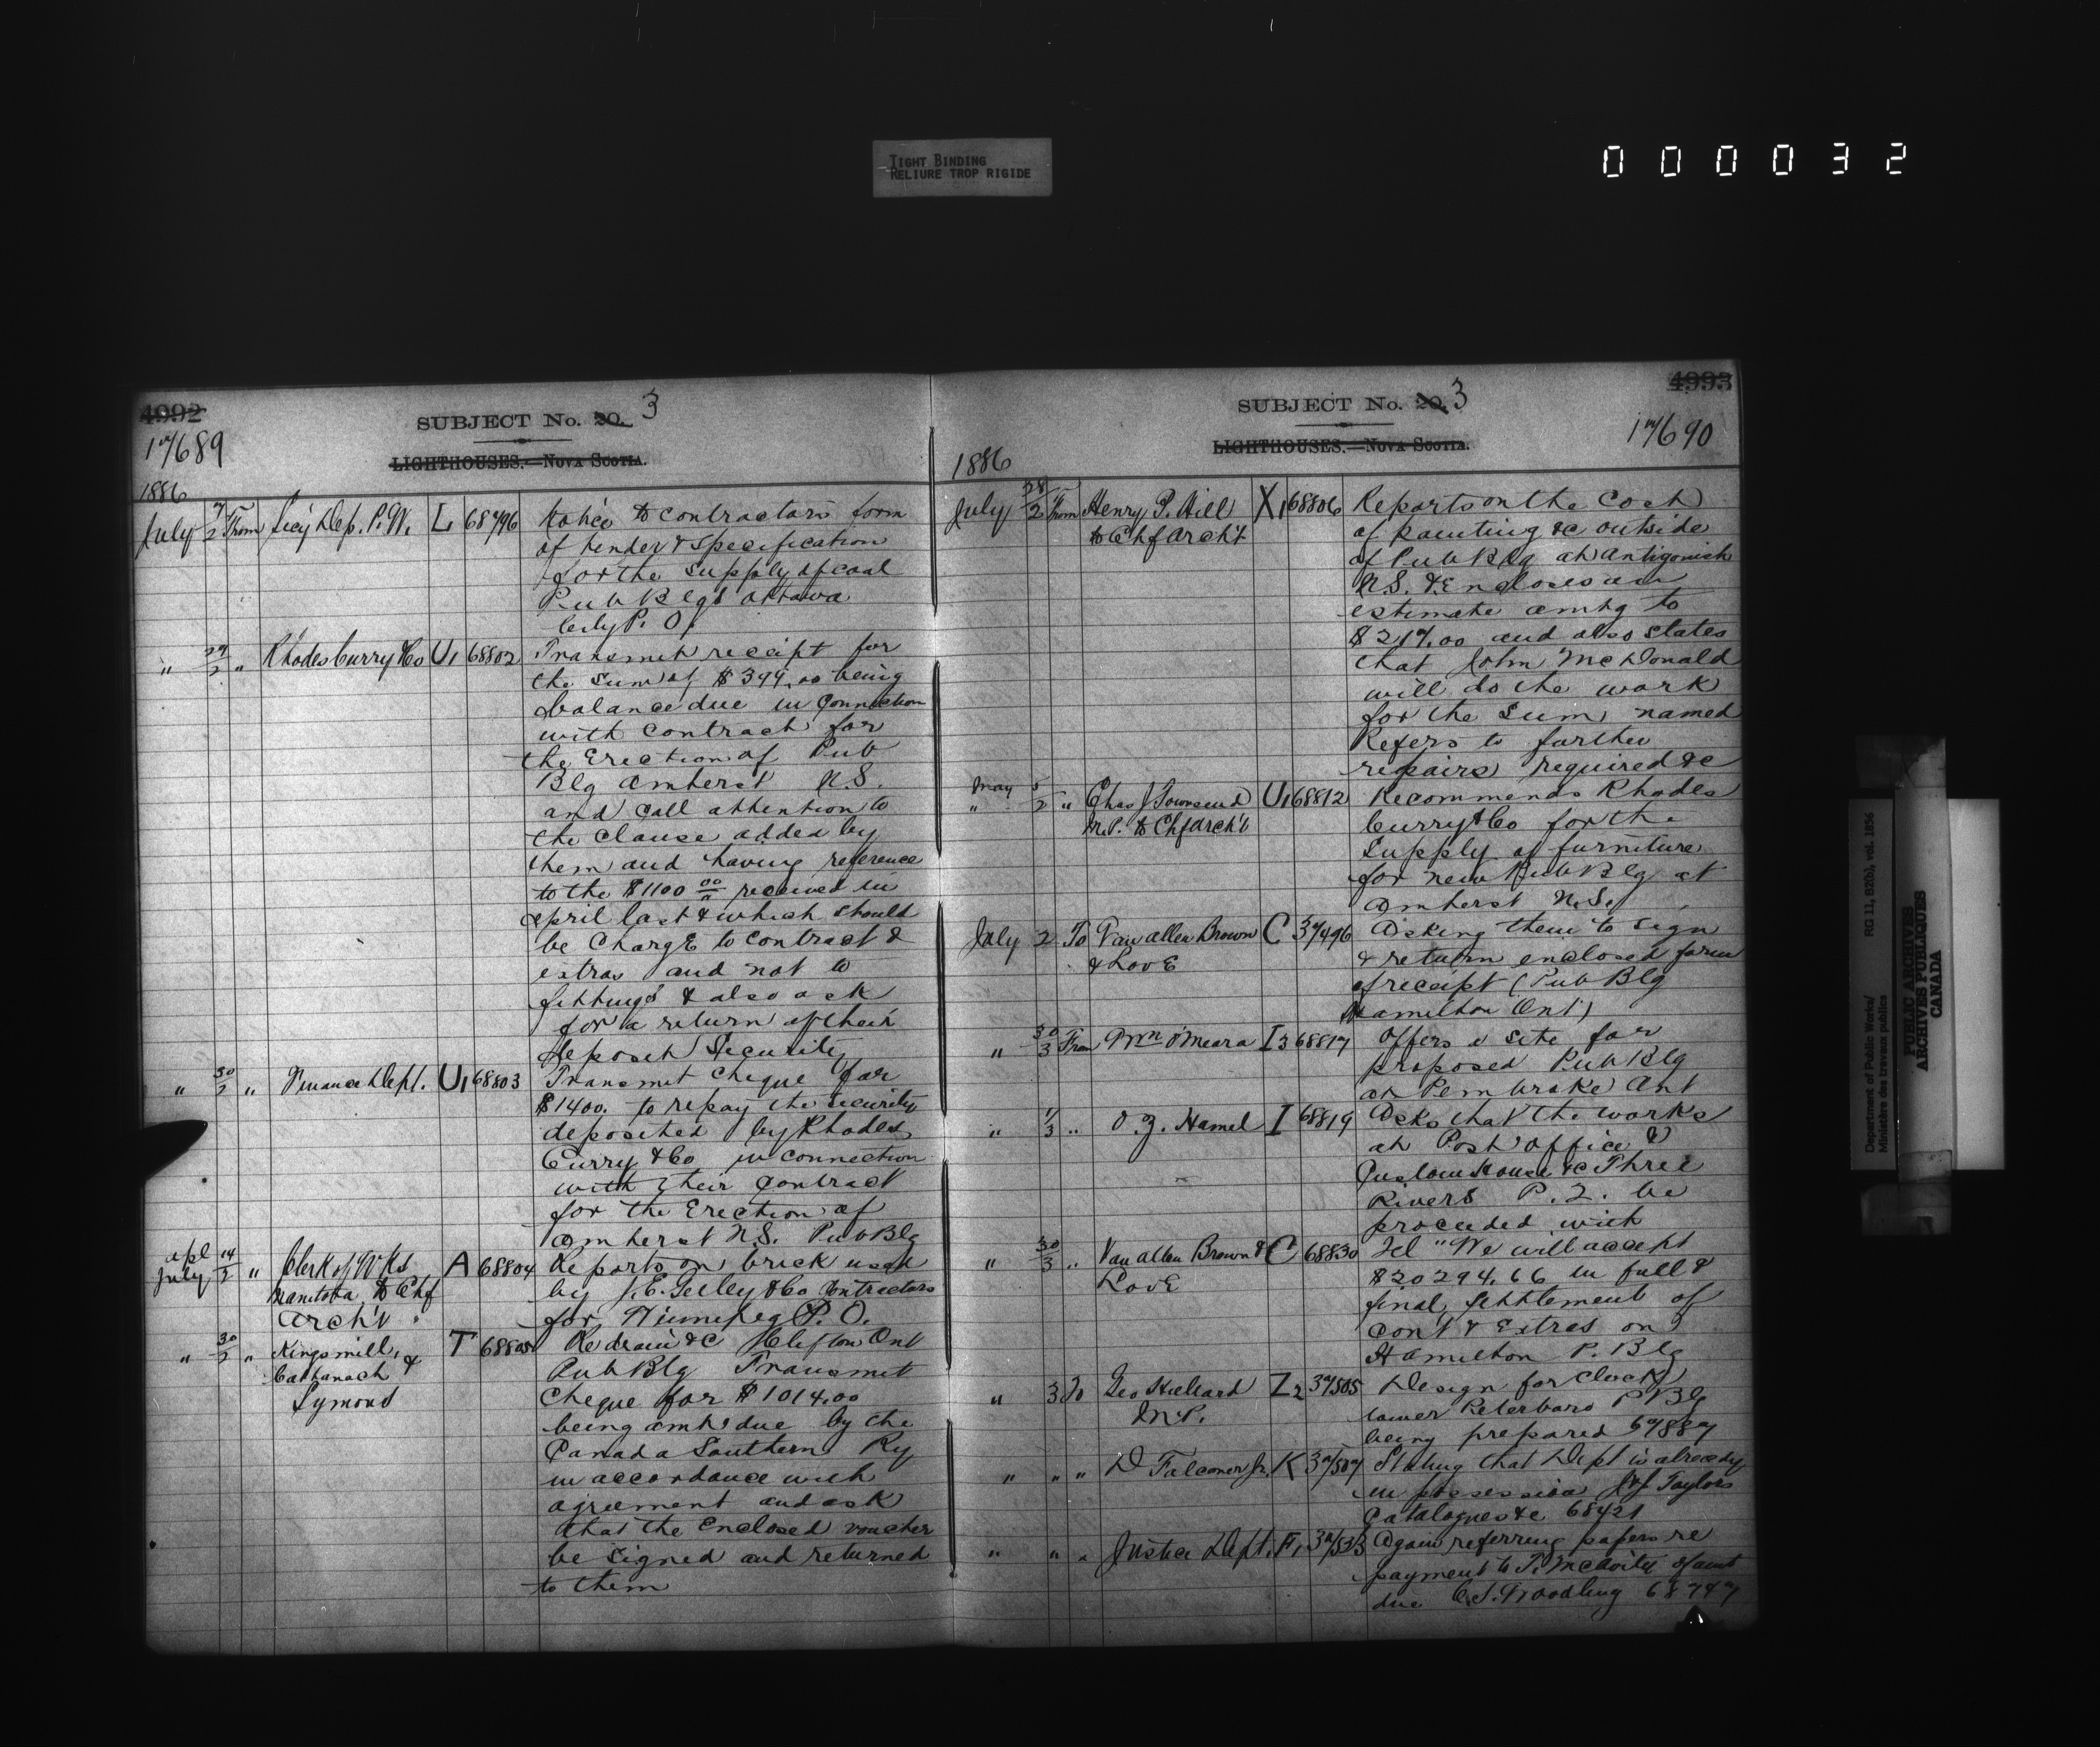 TIGHT BINDING
RELIURE TROP RIGIDE
000032
4992
SUBJECT No. 20. 3
17689
LIGHTHOUSES.—NOVA SCOTIA.
1886
July 7/2 From Secy Dep. P.W. L 68796 Notice to contractors form
of tender & specification
for the supply of coal
Pub Blgs Ottawa
City P. O.
" 29/2 " Rhodes Curry & Co U1 68802 Transmit receipt for
the sum of $399.00 being
balance due in connection
with contract for
the Erection of Pub
Blg Amherst N.S.
and call attention to
the clause added by
them and having reference
to the $1100 00 received in
April last & which should
be Charge to contract &
extras and not to
fittings & also ask
for a return of their
deposit Security
" 30/2 " Finance Dept. U1 68803 Transmit Cheque for
$1400. to repay the security
deposited by Rhodes
Curry & Co in connection
with their contract
for the Erection of
Amherst N.S. Pub Blg
apl
July 14/2 " Clerk of Wks A 68804 Reports on brick used
Manitoba to Chf by J.E. Gelley & Co Contractors
Arch't for Winnipeg P.O.
" 30/2 " Kingsmill, T 68805 Re drain &c Clifton Ont
Cattanach & Pub Blg Transmit
Symons Cheque for $1014.00
being amt due by the
Canada Southern Ry
in accordance with
agreement and ask
that the enclosed voucher
be signed and returned
to them
4993
SUBJECT No. 20. 3
17690
LIGHTHOUSES.—NOVA SCOTIA.
1886
July 28/2 From Henry P. Hill X1 68806 Reports on the Cost
to Chf Arch't of painting &c outside
of Pub Blg at Antigonish
N.S. & Encloses an
estimate amtg to
$217.00 and also states
that John McDonald
will do the work
for the Sum named
Refers to further
repairs required &c
May
" 5/2 " Chas J Townsend U1 68812 Recommends Rhodes
M.P. to Chf Arch't Curry & Co for the
Supply of furniture
for new Pub Blg at
Amherst N.S.
July 2 To Van Allen Brown C 37496 Asking them to sign
& Love & return enclosed form
of receipt (Pub Blg
Hamilton Ont)
" 30/3 From Wm O'Meara I3 68817 Offers a site for
proposed Pub Blg
at Pembroke Ont
" 1/3 " O.Z. Hamel I 68819 Asks that the works
at Post Office &
Custom House &c Three
Rivers P.Q. be
proceeded with
" 30/3 " Van Allen Brown & C 68830 Tel "We will accept
Love $20294.66 in full &
final settlement of
cont & Extras on
Hamilton P. Blg
" 3 To Geo Hilliard Z2 37505 Design for Clock
M.P. tower Peterboro P Blg
being prepared 67887
" " " D Falconer Jr. K 37507 Stating that Dept is already
in possession J & J Taylors
Catalogues &c 68421
" " " Justice Dept. F1 37533 Again referring papers re
payment to T. McAvity of amt
due C.S. Woodling 68747
Department of Public Works/
Ministère des travaux publics
RG 11, B2(b), vol. 1856
PUBLIC ARCHIVES
ARCHIVES PUBLIQUES
CANADA